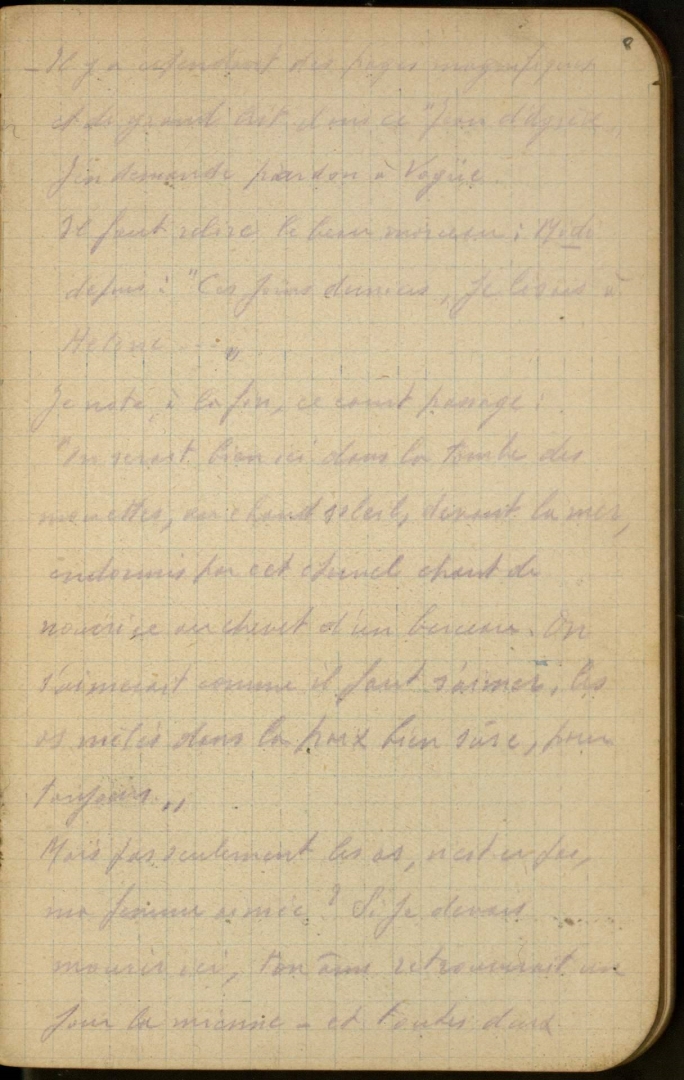 8
- Il y a cependant des pages magnifiques
et de grand art dans ce "Jean d'Agrève„
J'en demande pardon à Vogüé.
Il faut relire le beau morceau : Midi
depuis : "Ces jours derniers, je lisais à
Hélène ... „
Je note, à la fin, ce court passage :
"On serait bien ici dans la tombe des
mouettes, au chaud soleil, devant la mer,
endormis par cet éternel chant de
nourrice au chevet d'un berceau. On
s'aimerait comme il faut s'aimer, les
os mêlés dans la paix bien sûre, pour
toujours.„
Mais pas seulement les os, n'est-ce pas,
ma femme aimée ? Si je devais
mourir ici, ton âme retrouverait un
jour la mienne - et toutes deux